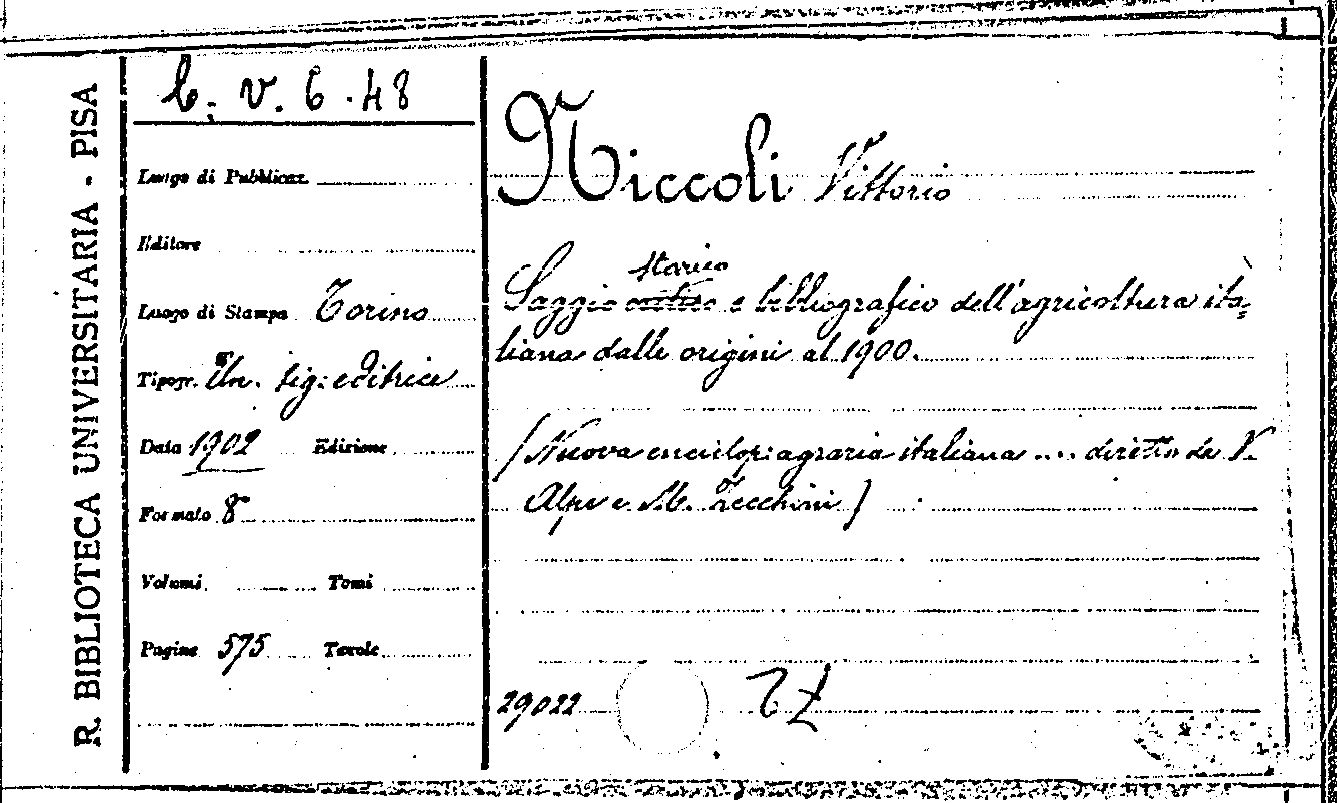 R. BIBLIOTECA UNIVERSITARIA - PISA
C. V. 6. 48
Luogo di Pubblicaz.
Editore
Luogo di Stampa Torino
Tipogr. Un. tip: editrice
Data 1902 Edizione
Formato 8°
Volumi Tomi
Pagine 575 Tavole
Niccoli Vittorio
storico
Saggio e bibliografico dell'agricoltura ita=
liana dalle origini al 1900.
(Nuova enciclop: agraria italiana .... diretta da V.
Alpi e M. Zecchini)
29022